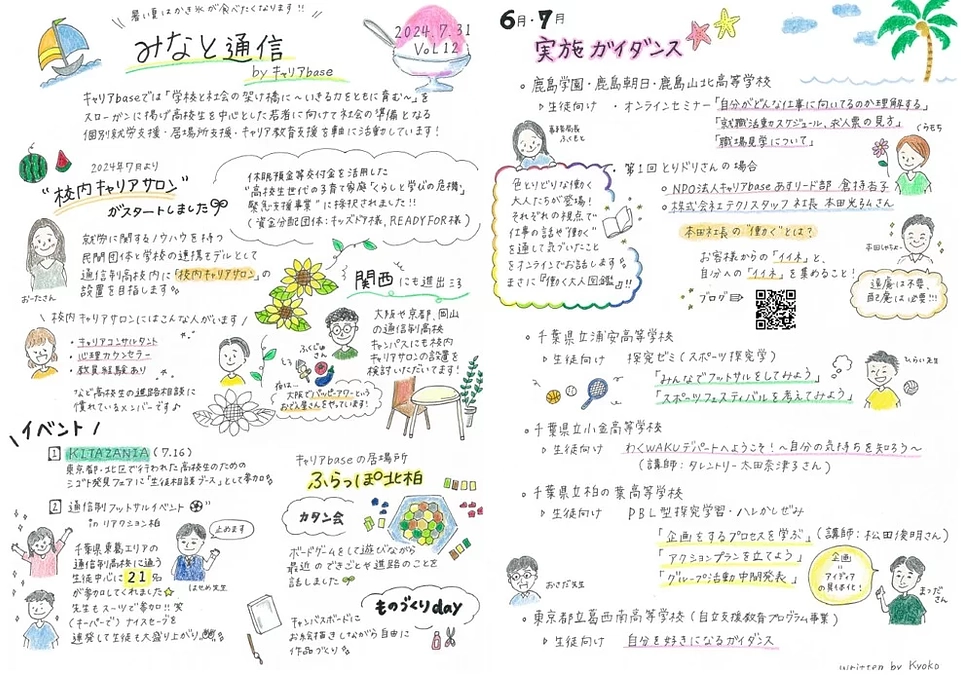 暑い夏はかき氷が食べたくなります!!
みなと通信
by キャリアbase
2024.7.31
VoL.12
キャリアbaseでは「学校と社会の架け橋に〜いきる力をともに育む〜」を
スローガンに掲げ高校生を中心とした若者に向けて社会の準備となる
個別就学支援・居場所支援・キャリア教育支援を軸に活動しています!
2024年7月より
"校内キャリアサロン"
がスタートしました
休眠預金等交付金を活用した
"高校生世代の子育て家庭「くらしと学びの危機」
緊急支援事業"に採択されました!!
(資金分配団体:キッズドア様、READYFOR様)
就労に関するノウハウを持つ
民間団体と学校の連携モデルとして
通信制高校内に「校内キャリアサロン」の
設置を目指します。
おーたさん
関西にも進出
大阪や京都、岡山
の通信制高校
キャンパスにも校内
キャリアサロンの設置を
検討いただいてます!
\ 校内キャリアサロンにはこんな人がいます /
・キャリアコンサルタント
・心理カウンセラー
・教員経験あり
など高校生の進路相談に
慣れているメンバーです♪
ふくじゅ
さん
夜は…
大阪でハッピーアワーという
おでん屋さんをやっています!
\イベント/
1 KITAZANIA (7.16)
東京都・北区で行われた高校生のための
シゴト発見フェアに「生徒相談ブース」として参加
2 通信制フットサルイベント
in リアクション柏
千葉県東葛エリアの
通信制高校に通う
生徒中心に 21名
が参加してくれました
先生もスーツで参加!!笑
(キーパーで)ナイスセーブを
連発して生徒も大盛り上がり
止めます
はせめ先生
キャリアbaseの居場所
ふらっぽ北柏
カタン会
ボードゲームをして遊びながら
最近のできごとや進路のことを
話しました
ものづくりday
キャンバスボードに
お絵描きしながら自由に
作品づくり
6月・7月
実施ガイダンス
鹿島学園・鹿島朝日・鹿島山北高等学校
▷生徒向け ・オンラインセミナー「自分がどんな仕事に向いてるのか理解する」
「就職活動スケジュール、求人票の見方」
「職場見学について」
事務局長
ふくもと
くらもち
・第1回 とりドリさんの場合
NPO法人キャリアbase あすリード部 倉持杏子
株式会社テクリスタッフ 社長 本田光弘さん
色とりどりな働く
大人たちが登場!
それぞれの視点で
仕事の話や「働く」
を通して気づいたこと
をオンラインでお話します。
まさに『働く大人図鑑』!!
本田社長の"働く"とは?
お客様からの「イイネ」と、
自分への「イイネ」を集めること!
ブログ
本田しゃちょー
遠慮は不要、
配慮は必要!!!
千葉県立浦安高等学校
▷生徒向け 探究ゼミ(スポーツ探究学)
「みんなでフットサルをしてみよう」
「スポーツフェスティバルを考えてみよう」
ひらい先生
千葉県立小金高等学校
▷生徒向け わくWAKUデパートへようこそ!〜自分の気持ちを知ろう〜
(講師:タレントリー太田奈津子さん)
千葉県立柏の葉高等学校
▷生徒向け PBL型探究学習・ハレかしぜみ
「企画をするプロセスを学ぶ」(講師:松田俊明さん)
「アクションプランを立てよう」
「グループ活動の中間発表」
おさだ先生
企画
=
アイディア
の具体化!
まつだ
さん
東京都立葛西南高等学校(自立支援教育プログラム事業)
▷生徒向け 自分を好きになるガイダンス
written by Kyoko